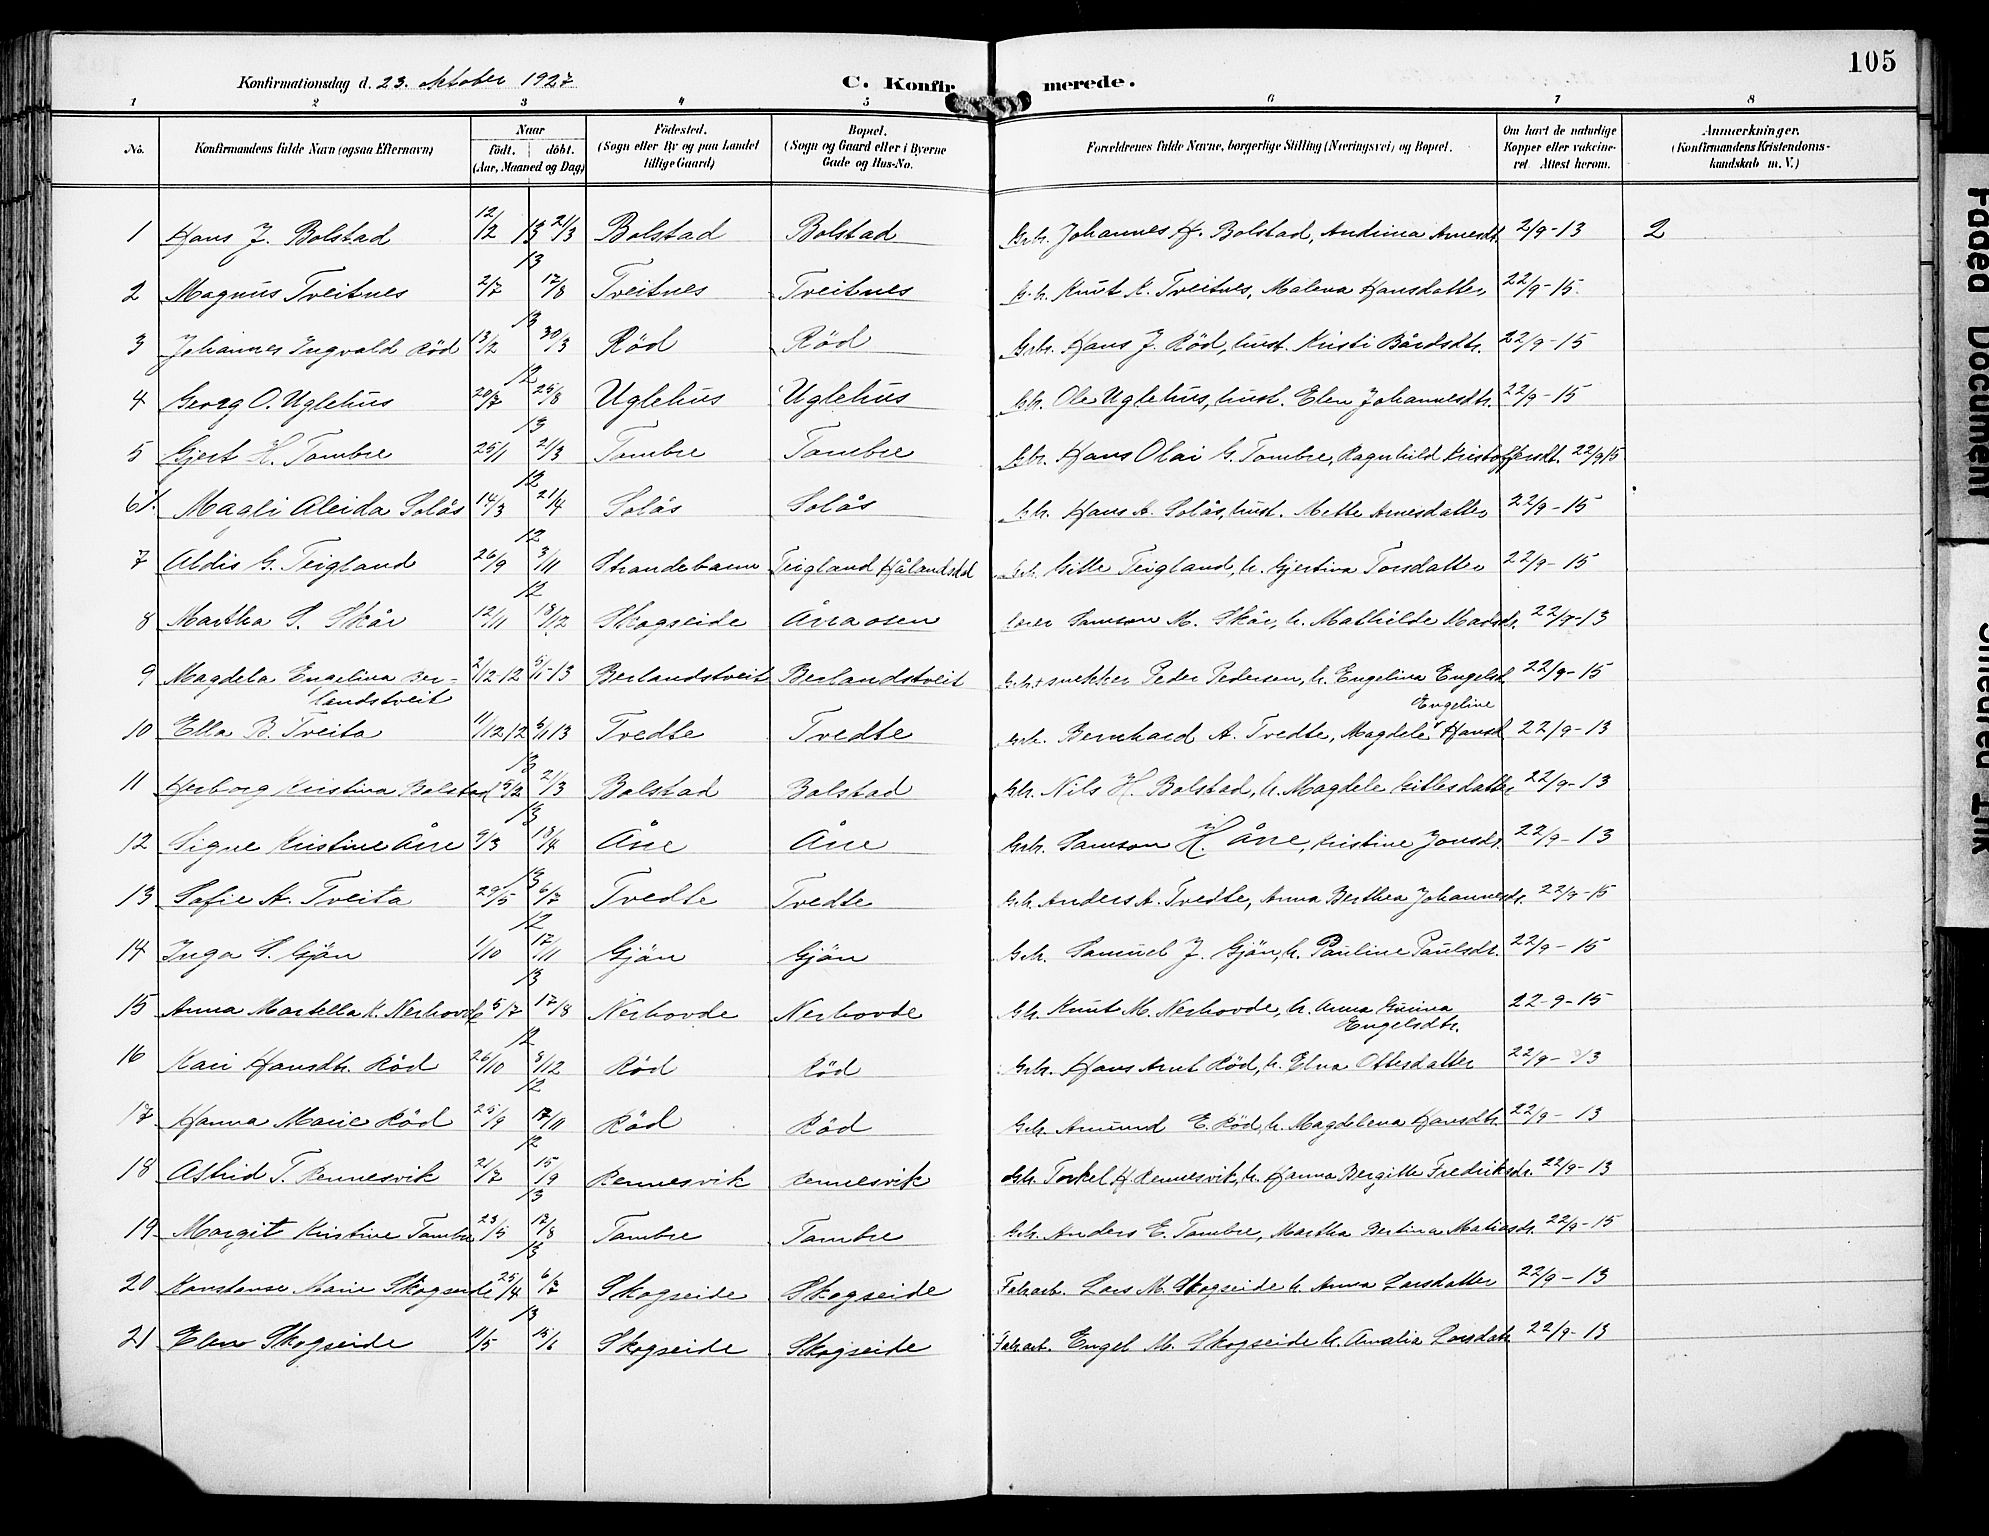 105
Konfirmationsdag d. 23. oktober 1927
C. Konfirmerede.
1 2 3 4 5 6 7 8
No. Konfirmandens fulde Navn (ogsaa Efternavn) Naar født. døbt. (Aar, Maaned og Dag) Fødested. (Sogn eller By og paa Landet tillige Gaard) Bopæl. (Sogn og Gaard eller i Byerne Gade og Hus-No. Forældrenes fulde Navne, borgerlige Stilling (Næringsvei) og Bopæl. Om havt de naturlige Kopper eller vakcineret Attest herom. Anmærkninger. (Konfirmandens Kristendomskundskab m. V.)
1 Hans J. Bolstad 12/2 13 21/3 Bolstad Bolstad Gbr. Johannes H. Bolstad, Andrina Arnesdt. 2/9-13 2
13
2 Magnus Tveitnes 2/7 17/8 Tveitnes Tveitnes Knut K. Tveitnes, Malena Hansdatter 22/9-15
13
3 Johannes Ingvald Röd 13/2 30/3 Röd Röd Gbr. Hans J. Röd, hust. Kristi Bårdsdtr. 22/9-15
12
4 Georg O. Uglehus 20/7 25/8 Uglehus Uglehus Gbr. Ole Uglehus, hust. Elen Johannesdt. 22/9-15
13
5 Gjert H. Tombre 25/1 21/3 Tombre Tombre Gbr. Hans Olai G. Tombre, Ragnhild Kristoffersdt. 22/9 15
12
6 Magli Aleida Solås 14/3 21/4 Solås Solås Gbr. Hans A. Solås, hust. Mette Arnesdatter 22/9-15
12
7 Aldis G. Teigland 26/9 3/11 Strandebarm Teigland Hålandsdal Gbr. Gitle Teigland, h. Gjertina Torsdatter 22/9-15
12
8 Martha S. Skår 12/11 18/12 Skogseide Samson M. Skår, h. Mathilde Madsdt. 22/9-13
9 Magdela Engelina Ber- 2/12 12 5/1-13 Berlandstveit Berlandstveit Gbr. + snekker Peder Pedersen, h. Engelina Engelsd 22/9-15
landstveit
Engeline
10 Ella B. Tveita 11/12 12 5/1 13 Tvedte Tvedte Gbr. Bernhard A. Tvedte, Magdele Hansd 22/9-13
13
11 Herborg Kristina Bolstad 15/2 21/3 Bolstad Bolstad Gbr. Nils H. Bolstad, h. Magdele Gitlesdatter 22/9-13
13
12 Signe Kristine Åre 9/3 13/4 Åre Åre Gbr. Samson H. Åre, Kristine Jonsdt. 22/9-13
13
13 Sofie A. Tveita 29/5 6/7 Tvedte Tvedte Gbr. Anders A. Tvedte, Anna Berthea Johannesdt. 22/9-15
12
14 Inga S. Gjön 1/10 17/11 Gjön Gjön Gbr. Samuel J. Gjön, h. Pauline Paulsdt. 22/9-15
13
15 Anna Martella K. Nerhovde 5/7 17/8 Nerhovde Nerhovde Gbr. Knut M. Nerhovde, h. Anna Gurina 22-9-15
Engelsdtr.
12
16 Kari Hansdtr. Röd 26/10 8/12 Röd Röd Gbr. Hans Arnt Röd, h. Elna Ottesdatter 22/9-13
12
17 Hanna Marie Röd 25/9 17/11 Röd Röd Gbr. Amund E. Röd, h. Magdelena Hansdtr. 22/9-13
12
18 Astrid T. Rennesvik 21/7 15/9 Rennesvik Rennesvik Gbr. Torkel H. Rennesvik, h. Hanna Bergitte Fredriksdt. 22/9-13
13
19 Margit Kristine Tombre 23/5 17/8 Tombre Tombre Gbr. Anders E. Tombre, Martha Bertina Matiasdt. 22/9-15
13
20 Konstanse Marie Skogseide 25/4 6/7 Skogseide Skogseide Fabrarb. Lars M. Skogseide h. Anna Larsdatter 22/9-13
13
21 Elen Skogseide 11/5 15/6 Skogseide Skogseide Fabrarb. Engel M. Skogseide h. Amalia Larsdatt 22/9-13
Faded Document
Smeared Ink